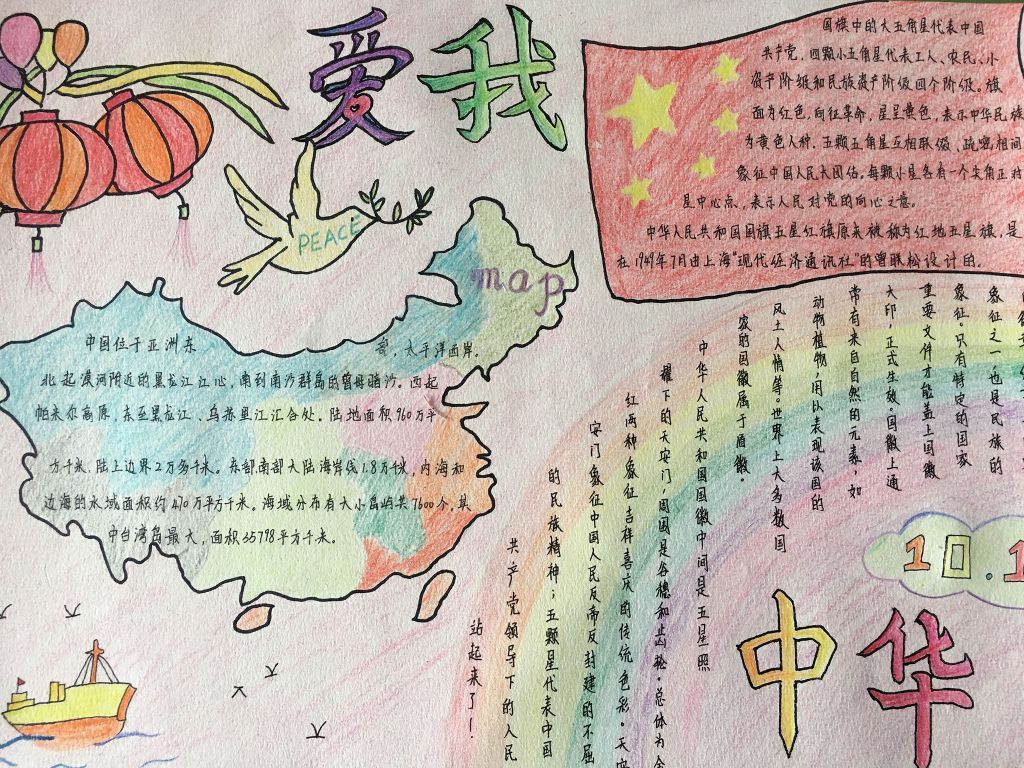 爱我
PEACE
map
国旗中的大五角星代表中国
共产党,四颗小五角星代表工人、农民、小
资产阶级和民族资产阶级四个阶级。旗
面为红色,向征革命,星呈黄色,表示中华民族
为黄色人种。五颗五角星互相联缀、疏密相间
象征中国人民大团结。每颗小星各有一个尖角正对
星中心点,表示人民对党的向心之意。
中华人民共和国国旗五星红旗原来被称为红地五星旗,是
在1949年7月由上海"现代经济通讯社"的曾联松设计的。
中国位于亚洲东
部,太平洋西岸。
北起漠河附近的黑龙江江心,南到南沙群岛的曾母暗沙。西起
帕米尔高原,东至黑龙江、乌苏里江汇合处。陆地面积960万平
方千米,陆上边界2万多千米。东部南部大陆海岸线1.8万千米,内海和
边海的水域面积约470万平方千米。海域分布有大小岛屿共7600个,其
中台湾岛最大,面积35798平方千米。
象征之一,也是民族的
象征。只有特定的国家
重要文件才能盖上国徽
大印,正式生效。国徽上通
常有来自自然的元素,如
动物植物,用以表现该国的
风土人情等。世界上大多数国
家的国徽属于盾徽。
中华人民共和国国徽中间是五星照
耀下的天安门,周围是谷穗和齿轮。总体为金
红两种象征吉祥喜庆的传统色彩。天安
安门象征中国人民反帝反封建的不屈
的民族精神;五颗星代表中国
共产党领导下的人民
站起来了!
10.1
中华